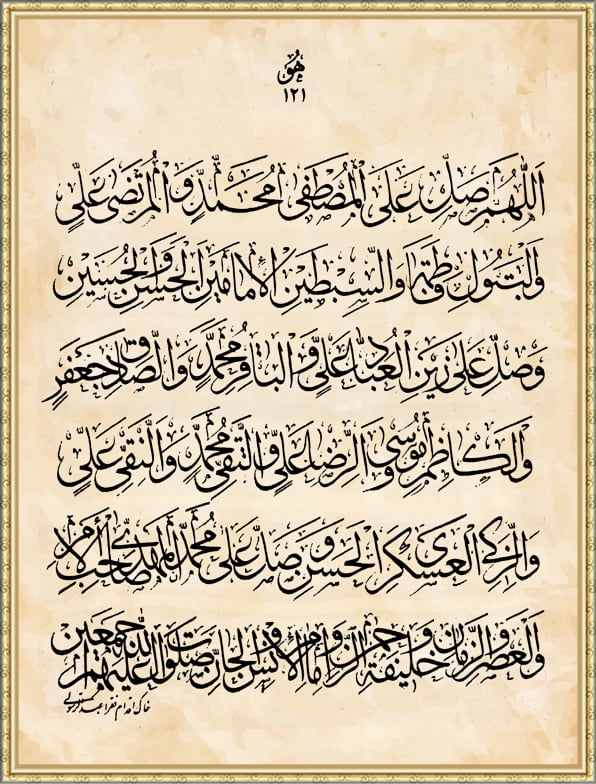 هُو
۱۲۱
اَللّٰهُمَّ صَلِّ عَلَی الْمُصْطَفٰی مُحَمَّدٍ وَالْمُرْتَضٰی عَلِیٍّ
وَالْبَتُولِ فَاطِمَةَ وَالسِّبْطَیْنِ الْاِمَامَیْنِ الْحَسَنِ وَالْحُسَیْنِ
وَصَلِّ عَلٰی زَیْنِ الْعِبَادِ عَلِیٍّ وَالْبَاقِرِ مُحَمَّدٍ وَالصَّادِقِ جَعْفَرٍ
وَالْکَاظِمِ مُوسٰی وَالرِّضَا عَلِیٍّ وَالتَّقِیِّ مُحَمَّدٍ وَالنَّقِیِّ عَلِیٍّ
وَالزَّکِیِّ الْعَسْکَرِیِّ الْحَسَنِ وَصَلِّ عَلٰی مُحَمَّدٍ الْمَهْدِیِّ صَاحِبِ الْاَمْرِ
وَالْعَصْرِ وَالزَّمَانِ وَخَلِیفَةِ الرَّحْمٰنِ وَاِمَامِ الْاِنْسِ وَالْجَانِّ صَلَوَاتُ اللّٰهِ عَلَیْهِمْ اَجْمَعِینَ
خاک اقدام فقرا